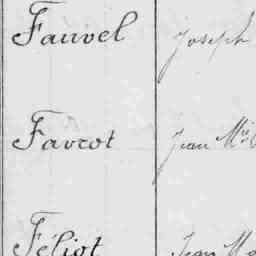 Fauvel Joseph
Favrot Jean M
Féliot Jean M